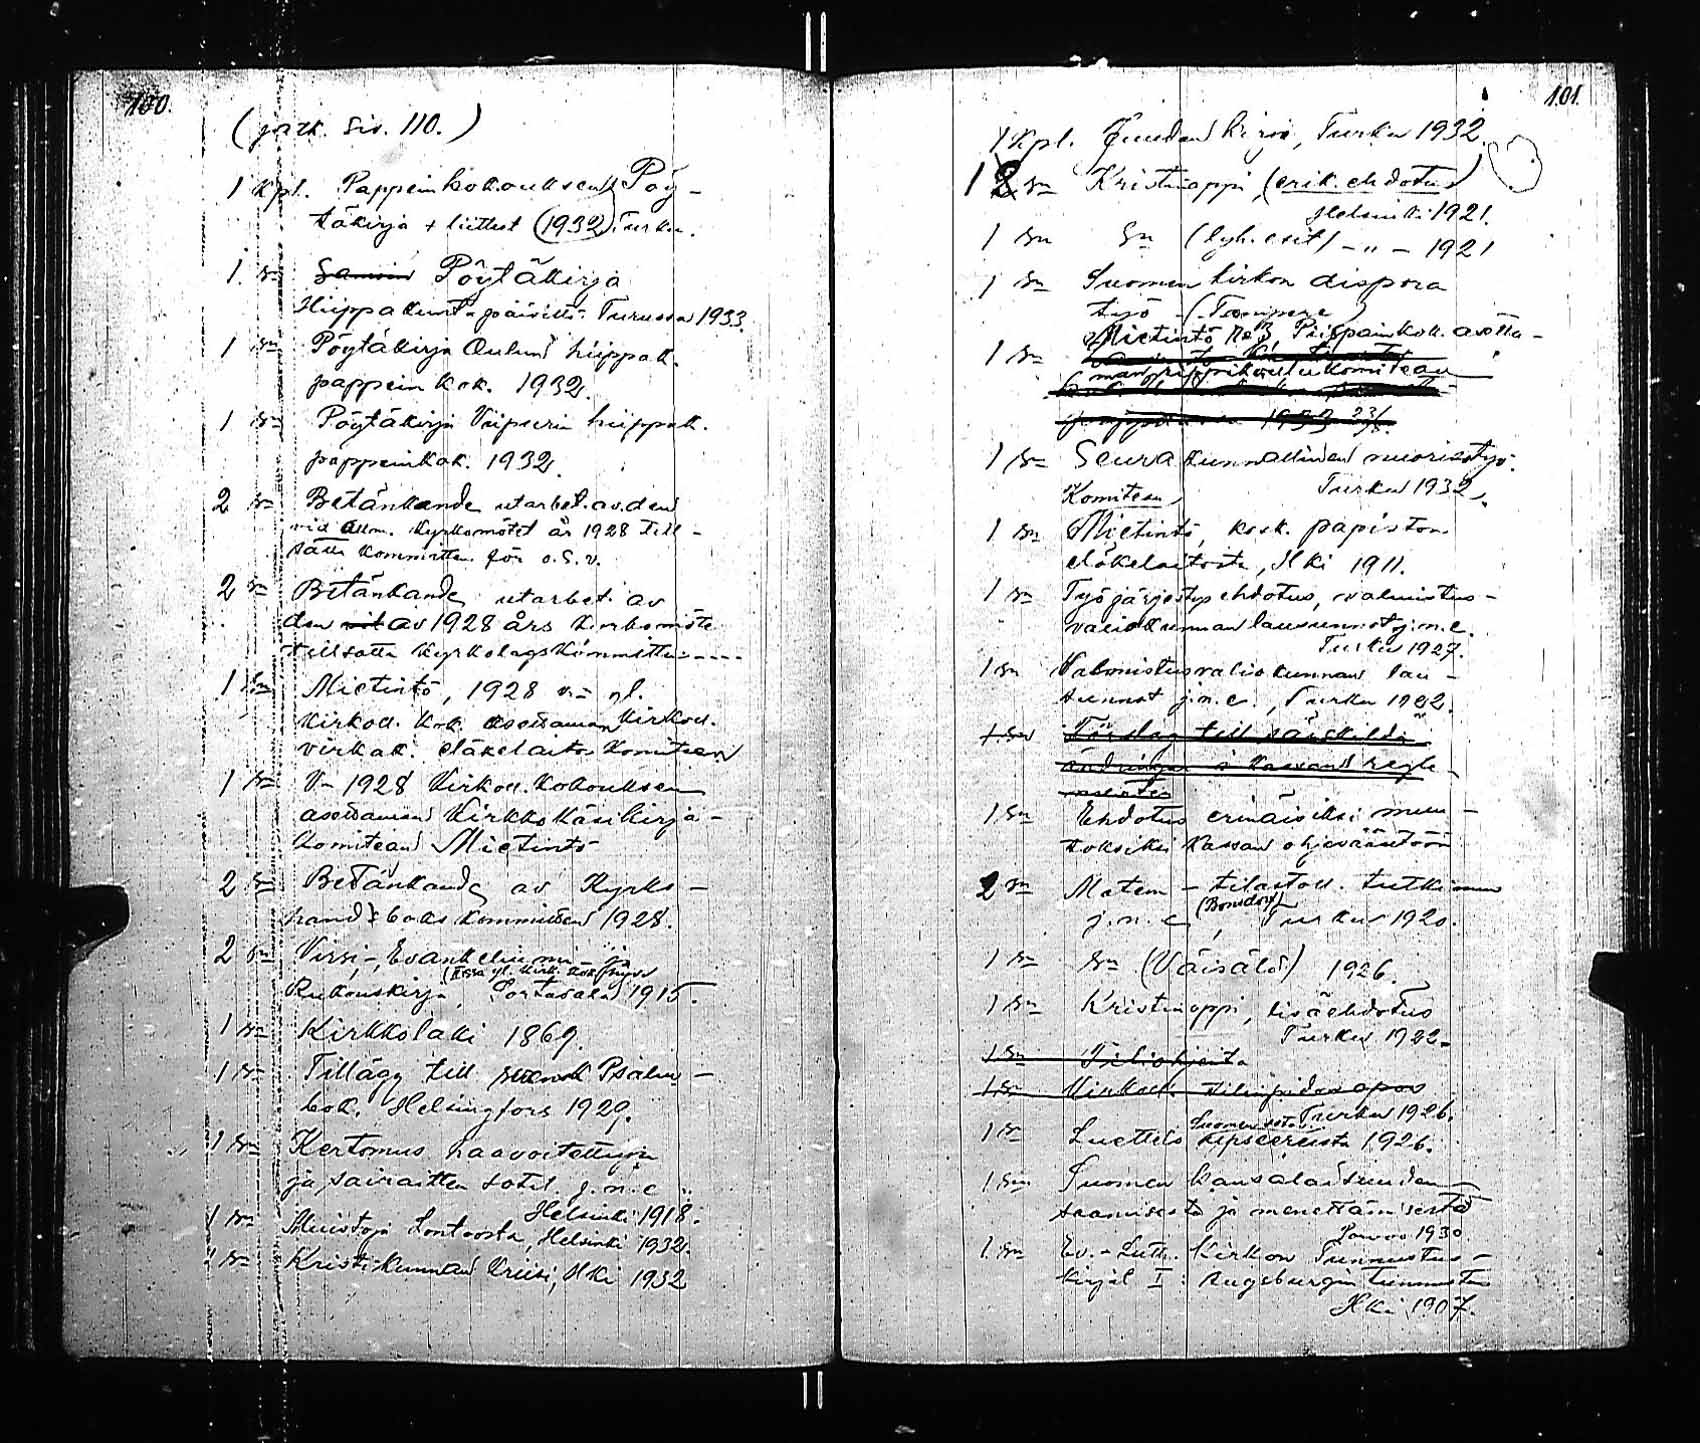 100.
(jatk. siv. 110.)
1 kpl. Pappeinkokouksen Pöy-
täkirja + liitteet (1932) Turku.
1 sn Pöytäkirja
Hiippakunta päiviltä. Turussa 1933.
1 sn Pöytäkirja Oulun hiippak.
pappein kok. 1932.
1 sn Pöytäkirja Viipurin hiippak.
pappeinkok. 1932.
2 sn Betänkande utarbet. av den
vid allm. Kyrkomötet år 1928 till-
satta kommitten för o.s.v.
2 sn Betänkande utarbet. av
den av 1928 års
tillsatta Kyrkolagskommitte - - - -
1 sn Mietintö, 1928 v:n yl.
Kirkoll. Kok. asettaman Kirkoll.
virkak. eläkelaitos Komitean
1 sn V-n 1928 Kirkoll. Kokouksen
asettaman Kirkkokäsikirja-
Komitean Mietintö
2 sn Betänkande av Kyrko-
handboks kommitten 1928.
2 sn Virsi-, Evankeliumi- ja
Rukouskirja, Sortavala 1915.
1 sn Kirkkolaki 1869.
1 sn Tillägg till svensk Psalm-
bok, Helsingfors 1929.
1 sn Kertomus haavoitettujen
ja sairaitten sotil. j.n.e
Helsinki 1918.
1 sn Muistoja Lontoosta, Helsinki 1932.
1 sn Kristikunnan kriisi, Hki 1932
101.
1 kpl. Juudan kirje, Turku 1932.
1 sn Kristinoppi, (erik. ehdotus)
Helsinki 1921.
1 sn sn (lyh. esit) - " - 1921
1 sn Suomen kirkon dispora
työ - (Tampere)
Mietintö No 3, Piispainkok. asetta-
1 sn
man rippikoulukomitean
1933 23/8.
1 sn Seurakunnallinen nuorisotyö.
Komitean Turku 1932.
1 sn Mietintö, kosk. papiston
eläkelaitosta, Hki 1911.
1 sn Työjärjestys ehdotus, valmistus-
valiokunnan lausunnot j.n.e.
Turku 1927.
1 sn Valmistusvaliokunnan lau-
sunnot j.n.e., Turku 1922.
1 sn Förslag till särskilda
ändringar i Kassans regle-
mente
1 sn Ehdotus erinäisiksi muu-
toksiksi Kassan ohjesääntöön
2 sn Matem - tilastoll. tutkimus
(Bonsdorf)
j.n.e, Turku 1920.
1 sn sn (Väisälä) 1926.
1 sn Kristinoppi, lisäehdotus
Turku 1922.
1 sn Tiliohjeita
1 sn Kirkoll. tilinpidon opas
Turku 1926.
1 sn Luettelo upseereista 1926.
1 sn Suomen kansalaisuuden
saamisesta ja menettämisestä
Porvoo 1930
1 sn Ev.-Luth. Kirkon Tunnustus-
kirjat I: Augsburgin tunnustus
Hki 1907.